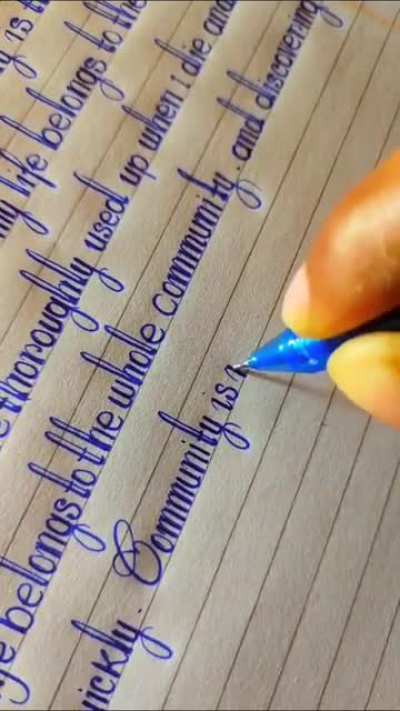 is th
my life belongs to the
thoroughly used up when i die and
life belongs to the whole community. and discovering
uickly. Community is